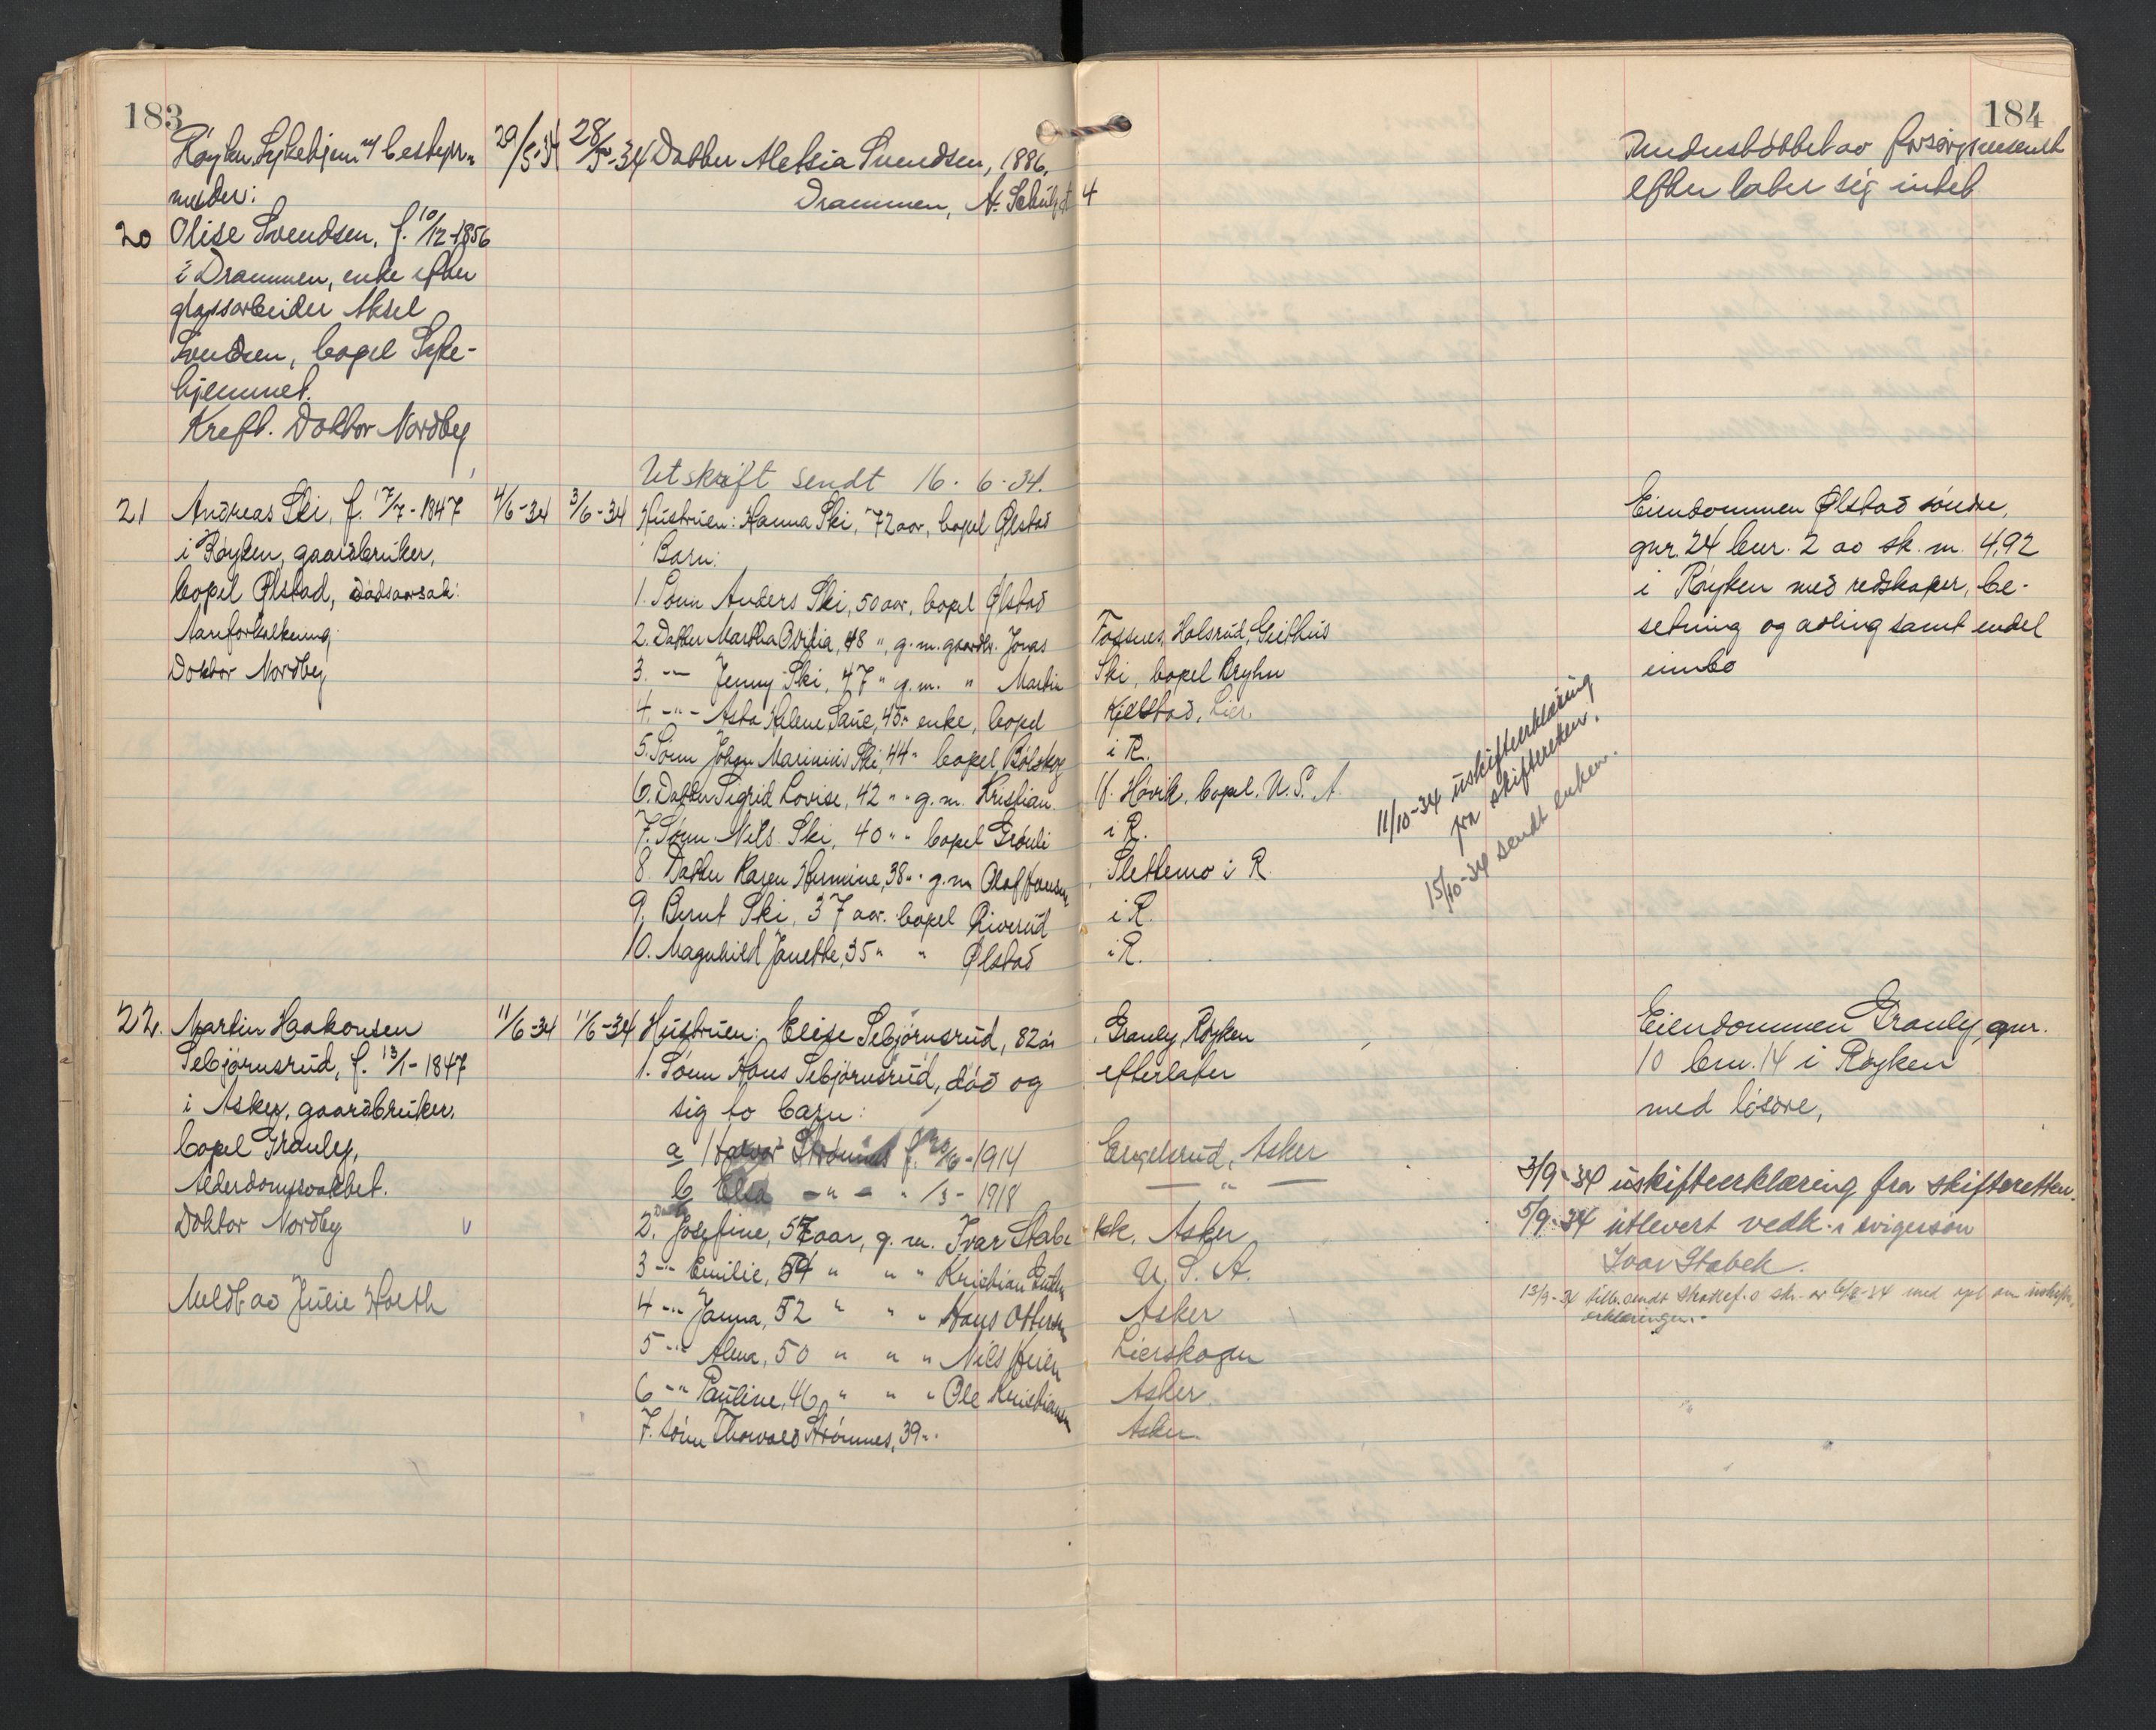 183
Røyken Sykehjem v/ bestyr-
29/5-34
28/5-34
Datter Aletsia Svendsen, 1886,
melder:
Drammen, N.
4
20 Olise Svendsen, f. 10/12-1856
i Drammen, enke efter
glassarbeider Aksel
Svendsen, bopel Syke-
hjemmet.
Kreft. Doktor Nordby
Utskrift sendt 16.6.34.
21 Andreas Ski, f. 17/7-1847
i Røyken, gaardbruker,
bopel Ølstad, dødsaarsak:
Aareforkalkning.
Doktor Nordby
4/6-34
3/6-34
Hustruen: Hanna Ski, 72 aar, bopel Ølstad
Barn:
1. Sønn Anders Ski, 50 aar, bopel Ølstad
2. Datter Martha Ovidia, 48 ", g.m. gaardbr. Jonas Fossnes, Holsrud, Geithus
3. -"- Jenny Ski, 47 " g.m. " Martin Ski, bopel Bryhn
4. -"- Asta Helene Saue, 45 " enke, bopel Kjelstad, Lier.
5. Sønn Johan Marinius Ski, 44 " bopel Bølstad i R.
6. Datter Sigrid Lovise, 42 " " g.m. Kristian H. Høvik, bopel. U.S.A
7. Sønn Nils Ski, 40 " " bopel Grønli i R.
8. Datter Karen Hermine, 38 " " g.m Olaf Hansen, Slettemo i R.
9. Bernt Ski, 37 aar. bopel Riverud i R.
10. Magnhild Janette, 35 " " Ølstad i R.
22. Martin Haakonsen
Sebjørnsrud, f. 13/1-1847
i Asker, gaardbruker,
bopel Granly,
Alderdomssvakhet.
Doktor Nordby
Meldt av Julie Hoeth
11/6-34
11/6-34
Hustruen: Elise Sebjørnsrud, 82 år, Granly, Røyken
1. Sønn Hans Sebjørnsrud, død og efterlater
sig to barn:
a Halvor f. 20/6-1914 Engelsrud, Asker
b Elsa -"- " /3-1918 -"-
2. Datter Josefine, 57 aar, g.m. Ivar Stabekk, Asker
3 -"- Emilie, 54 " " " Kristian U.S.A.
4 -"- Janna, 52 " " " Hans Ottersen Asker
5 -"- Alma, 50 " " " Nils Heien Lierskogen
6 -"- Pauline, 46 " " " Ole Kristiansen Asker.
7. Sønn Thorvald Strømnes, 39 " Asker
184
Understøttet av forsorgsvesenet
efterlater sig intet
Eiendommen Ølstad søndre,
gnr. 24 bnr. 2 av sk. m. 4,92
i Røyken med redskaper, be-
setning og avling samt endel
innbo
11/10-34 uskifteerklæring
fra skifteretten.
15/10-34 sendt enken.
Eiendommen Granly, gnr.
10 bnr. 14 i Røyken
med løsøre,
3/9-34 uskifteerklæring fra skifteretten.
5/9-34 utlevert vedk. svigersøn
Ivar Stabek.
13/9-34 tilb. sendt skattef. s skr. av 6/8-34 med om uskifte-
erklæringen.